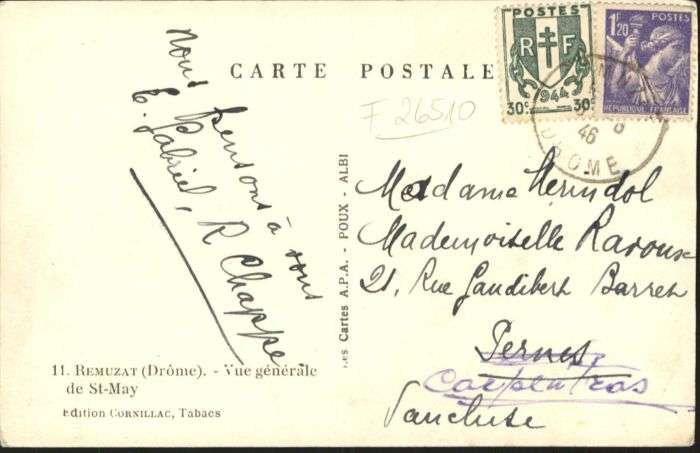 CARTE POSTALE
POSTES
R F
1944
30c 30c
POSTES
1F20
RÉPUBLIQUE FRANÇAISE
46
DROME
F 26510
Nous pensons à vous
E. Gabriel, R Chappe
Les Cartes A.P.A. - POUX - ALBI
Madame Merindol
Mademoiselle Ravoux
21, Rue Gaudibert Barret
Pernes
Carpentras
Vaucluse
11. REMUZAT (Drôme). - Vue générale
de St-May
Edition CORNILLAC, Tabacs